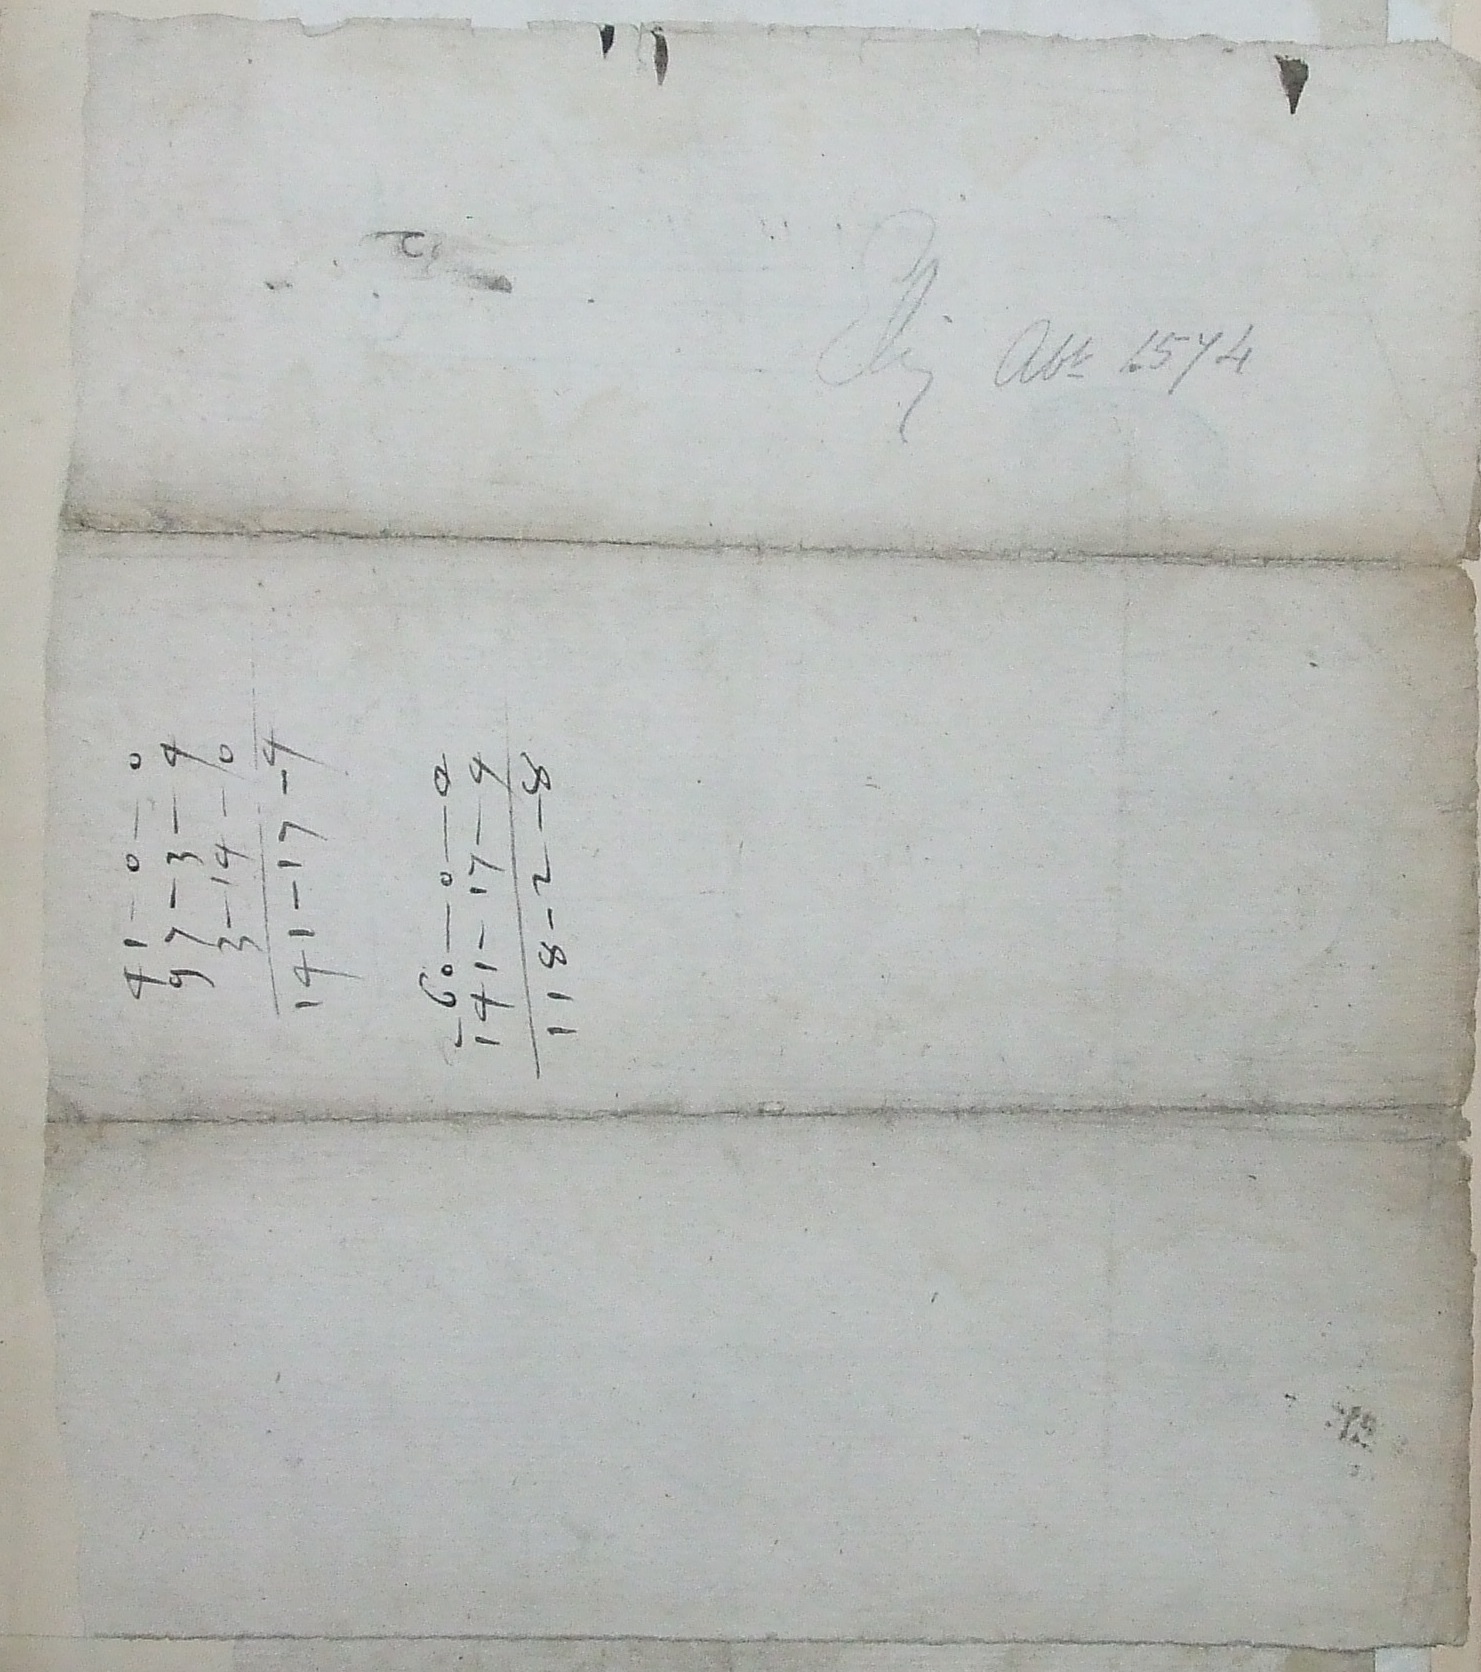 Eliz Abt 1574
41—0—0
97—3—4
3—14—0
141—17—4
260—0—0
141—17—4
118—2—8